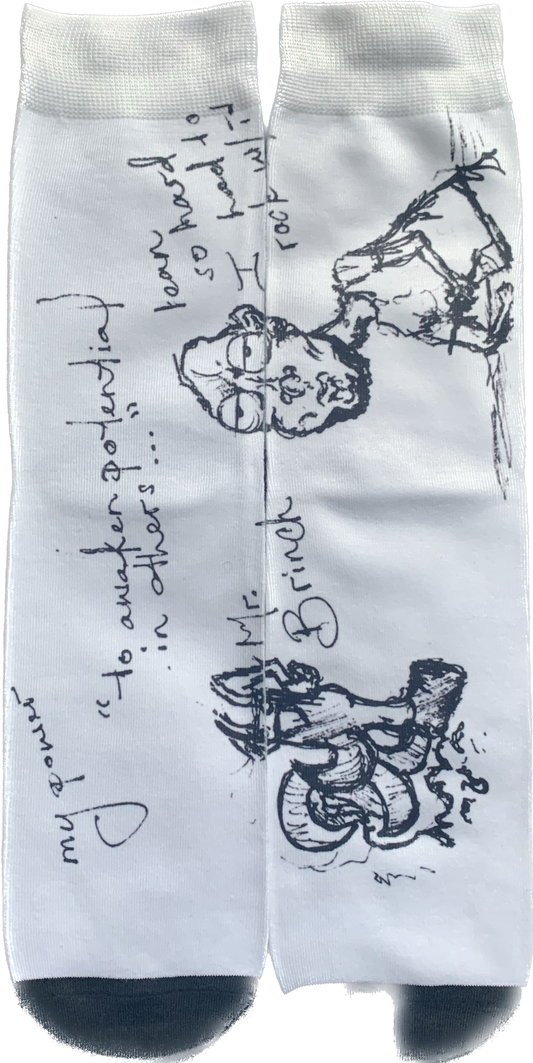 my power
“to awaken potential
in others...”
so hard
I had to
rock
Mr.
Brinch